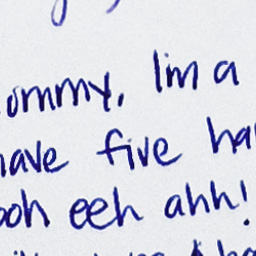 ommy, I'm a
have five ha
ooh eeh ahh!